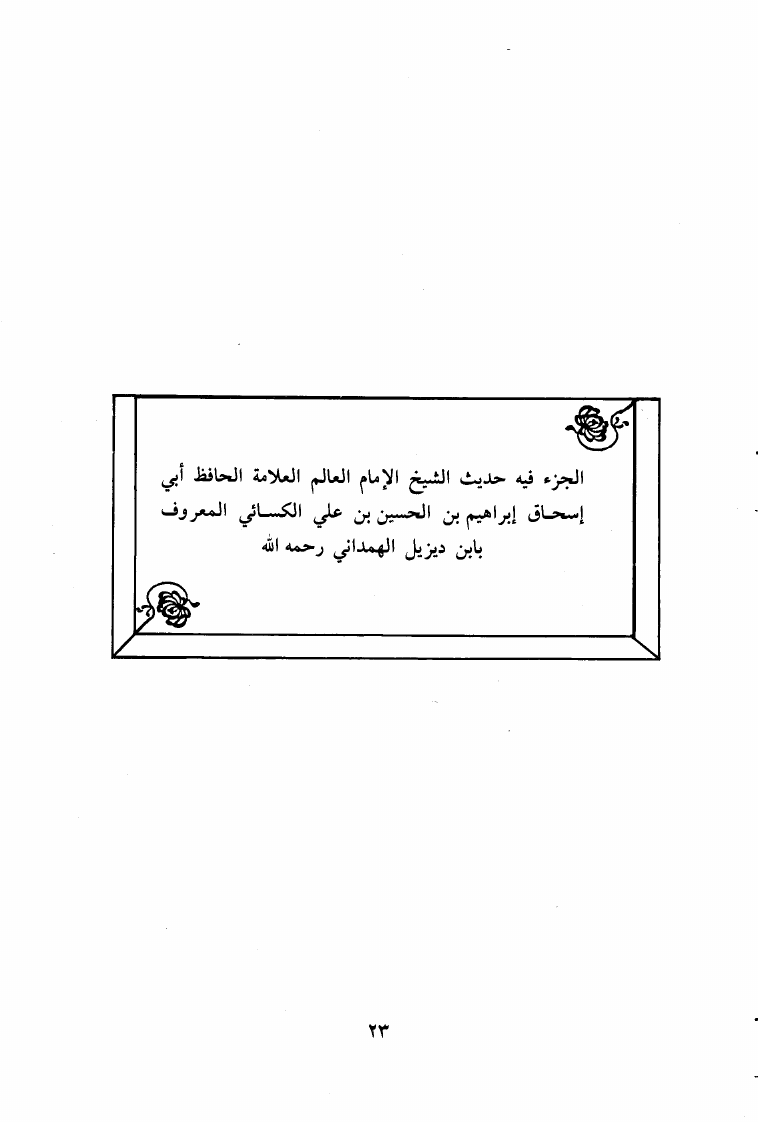 الجزء فيه حديث الشيخ الإمام العالم العلامة الحافظ أبي
إسحاق إبراهيم بن الحسين بن علي الكسائي المعروف
بابن ديزيل الهمداني رحمه الله
٢٣